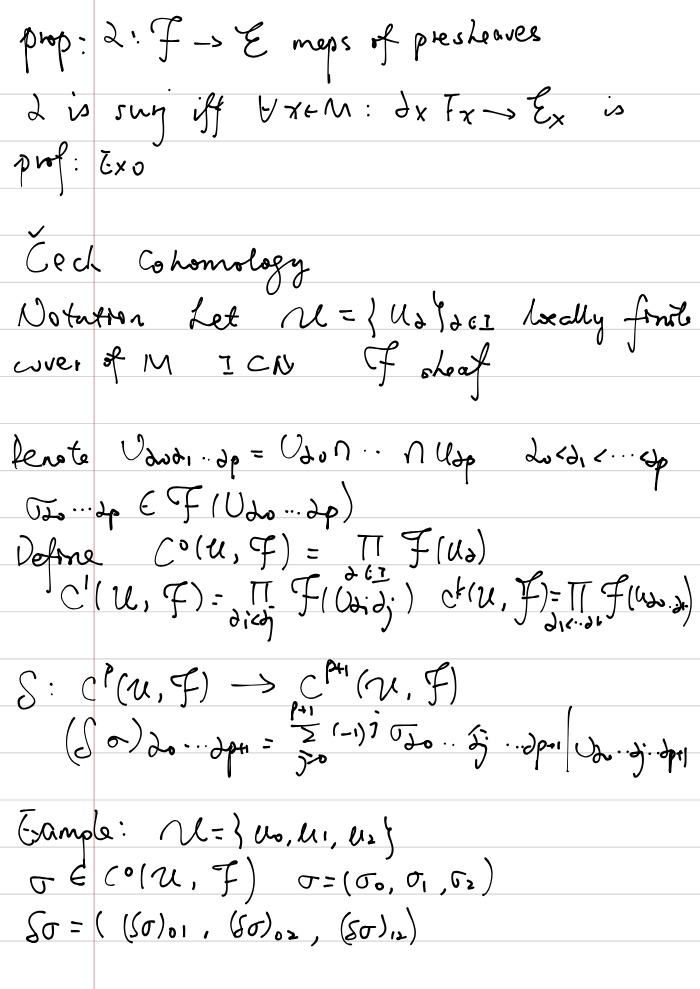 prop: α: ℱ → ℰ maps of presheaves
α is surj iff ∀x∈M: αx Fx → ℰx is
prof: Exo
Čech Cohomology
Notation Let 𝒰 = {Uα}α∈I locally finite
cover of M I⊂ℕ ℱ sheaf
Denote Uα0α1..αp = Uα0∩..∩Uαp α0<α1<...<αp
σα0...αp ∈ ℱ(Uα0...αp)
Define C⁰(𝒰,ℱ) = ∏α∈I ℱ(Uα)
C¹(𝒰,ℱ) = ∏αi<αj ℱ(Uαiαj) Cᵏ(𝒰,ℱ) = ∏α1<..αk ℱ(Uα0..αk)
δ: Cᵖ(𝒰,ℱ) → Cᵖ⁺¹(𝒰,ℱ)
(δσ)α0...αp+1 = ∑j=0^p+1 (-1)^j σα0..α̂j...αp+1|Uα0..αj..αp+1
Example: 𝒰={U0,U1,U2}
σ ∈ C⁰(𝒰,ℱ) σ=(σ0,σ1,σ2)
δσ = ((δσ)01, (δσ)02, (δσ)12)